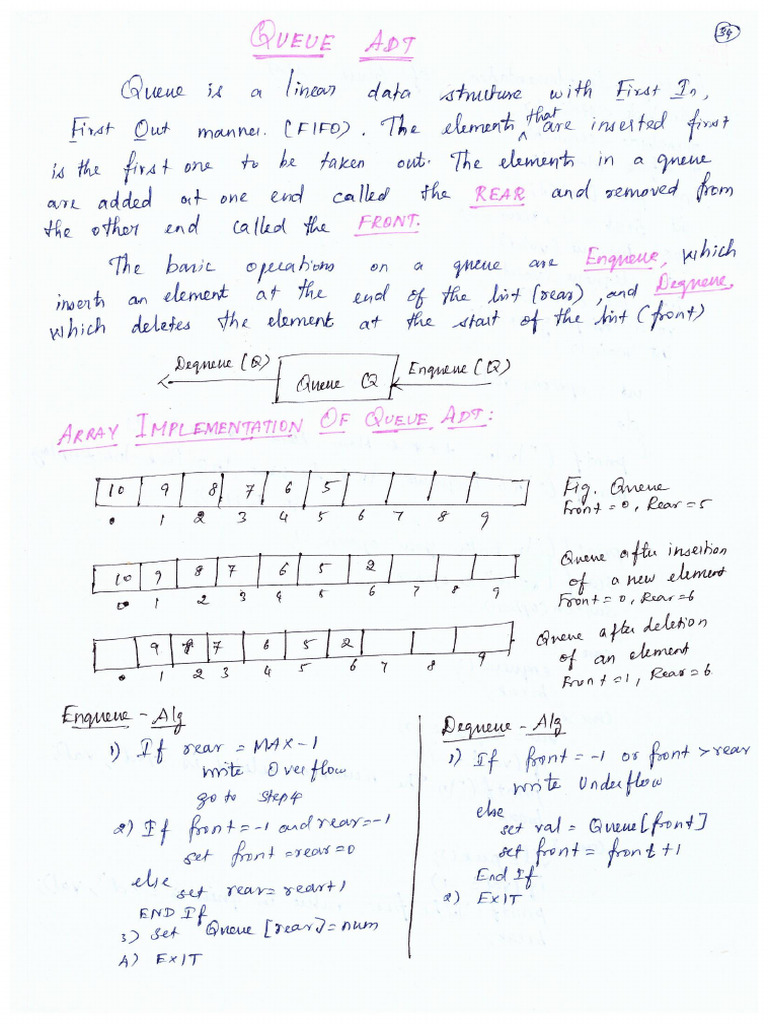 34
QUEUE ADT
Queue is a linear data structure with First In,
First Out manner. (FIFO). The elements that are inserted first
is the first one to be taken out. The elements in a queue
are added at one end called the REAR and removed from
the other end called the FRONT.
The basic operations on a queue are Enqueue, which
inserts an element at the end of the list (rear), and Dequeue,
which deletes the element at the start of the list (front)
Dequeue (Q) Queue Q Enqueue (Q)
ARRAY IMPLEMENTATION OF QUEUE ADT:
10 9 8 7 6 5
0 1 2 3 4 5 6 7 8 9
Fig. Queue
Front = 0, Rear = 5
10 9 8 7 6 5 2
0 1 2 3 4 5 6 7 8 9
Queue after insertion
of a new element
Front = 0, Rear = 6
9 8 7 6 5 2
0 1 2 3 4 5 6 7 8 9
Queue after deletion
of an element
Front = 1, Rear = 6
Enqueue - Alg
1) If rear = MAX-1
write Overflow
go to step 4
2) If front = -1 and rear = -1
set front = rear = 0
else
set rear = rear + 1
END If
3) set Queue [rear] = num
4) EXIT
Dequeue - Alg
1) If front = -1 or front > rear
write Underflow
else
set val = Queue [front]
set front = front + 1
End If
2) EXIT